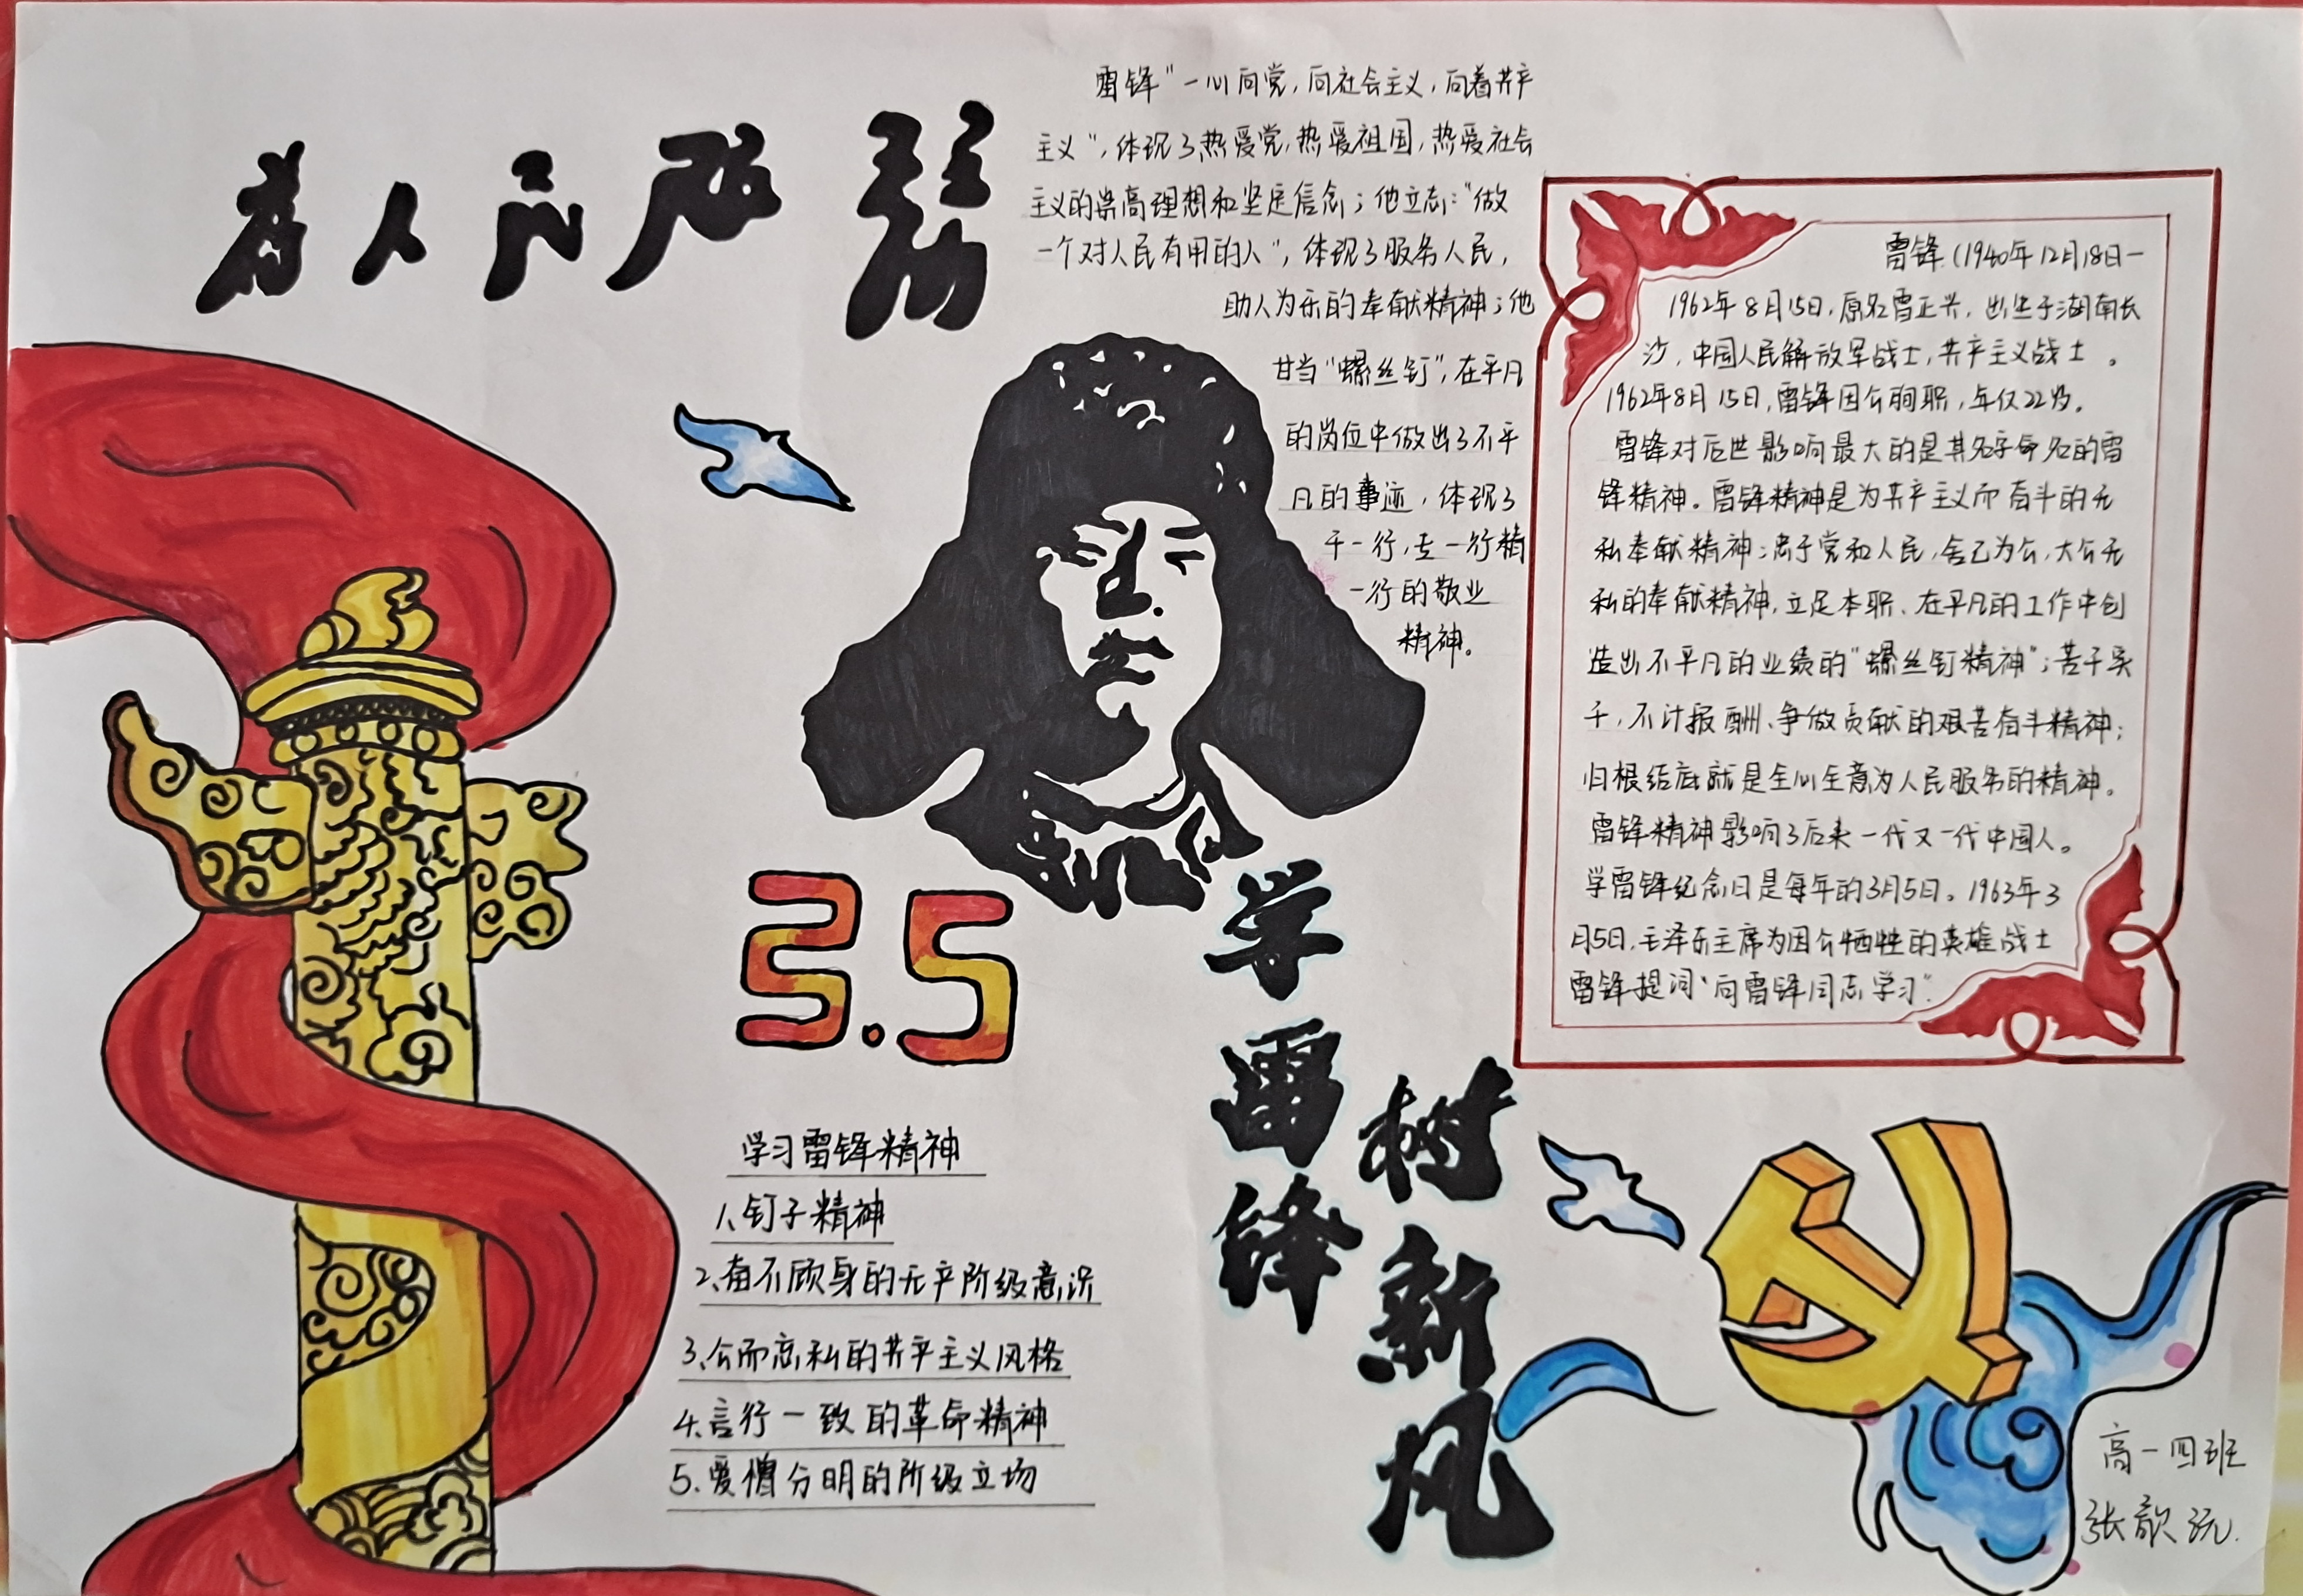 为人民服務
雷锋“一心向党，向社会主义，向着共产
主义”，体现了热爱党，热爱祖国，热爱社会
主义的崇高理想和坚定信念；他立志：“做
一个对人民有用的人”，体现了服务人民，
助人为乐的奉献精神；他
甘当“螺丝钉”，在平凡
的岗位中做出了不平
凡的事迹，体现了
干一行，专一行精
一行的敬业
精神。
雷锋（1940年12月18日—
1962年8月15日，原名雷正兴，出生于湖南长
沙，中国人民解放军战士，共产主义战士。
1962年8月15日，雷锋因公殉职，年仅22岁。
雷锋对后世影响最大的是其名字命名的雷
锋精神。雷锋精神是为共产主义而奋斗的无
私奉献精神；忠于党和人民，舍己为公，大公无
私的奉献精神，立足本职、在平凡的工作中创
造出不平凡的业绩的“螺丝钉精神”；苦干实
干，不计报酬、争做贡献的艰苦奋斗精神；
归根结底就是全心全意为人民服务的精神。
雷锋精神影响了后来一代又一代中国人。
学雷锋纪念日是每年的3月5日。1963年3
月5日，毛泽东主席为因公牺牲的英雄战士
雷锋提词“向雷锋同志学习”。
3.5
学雷锋
树新风
学习雷锋精神
1、钉子精神
2、奋不顾身的无产阶级意识
3、公而忘私的共产主义风格
4、言行一致的革命精神
5、爱憎分明的阶级立场
高一四班
张歆沅